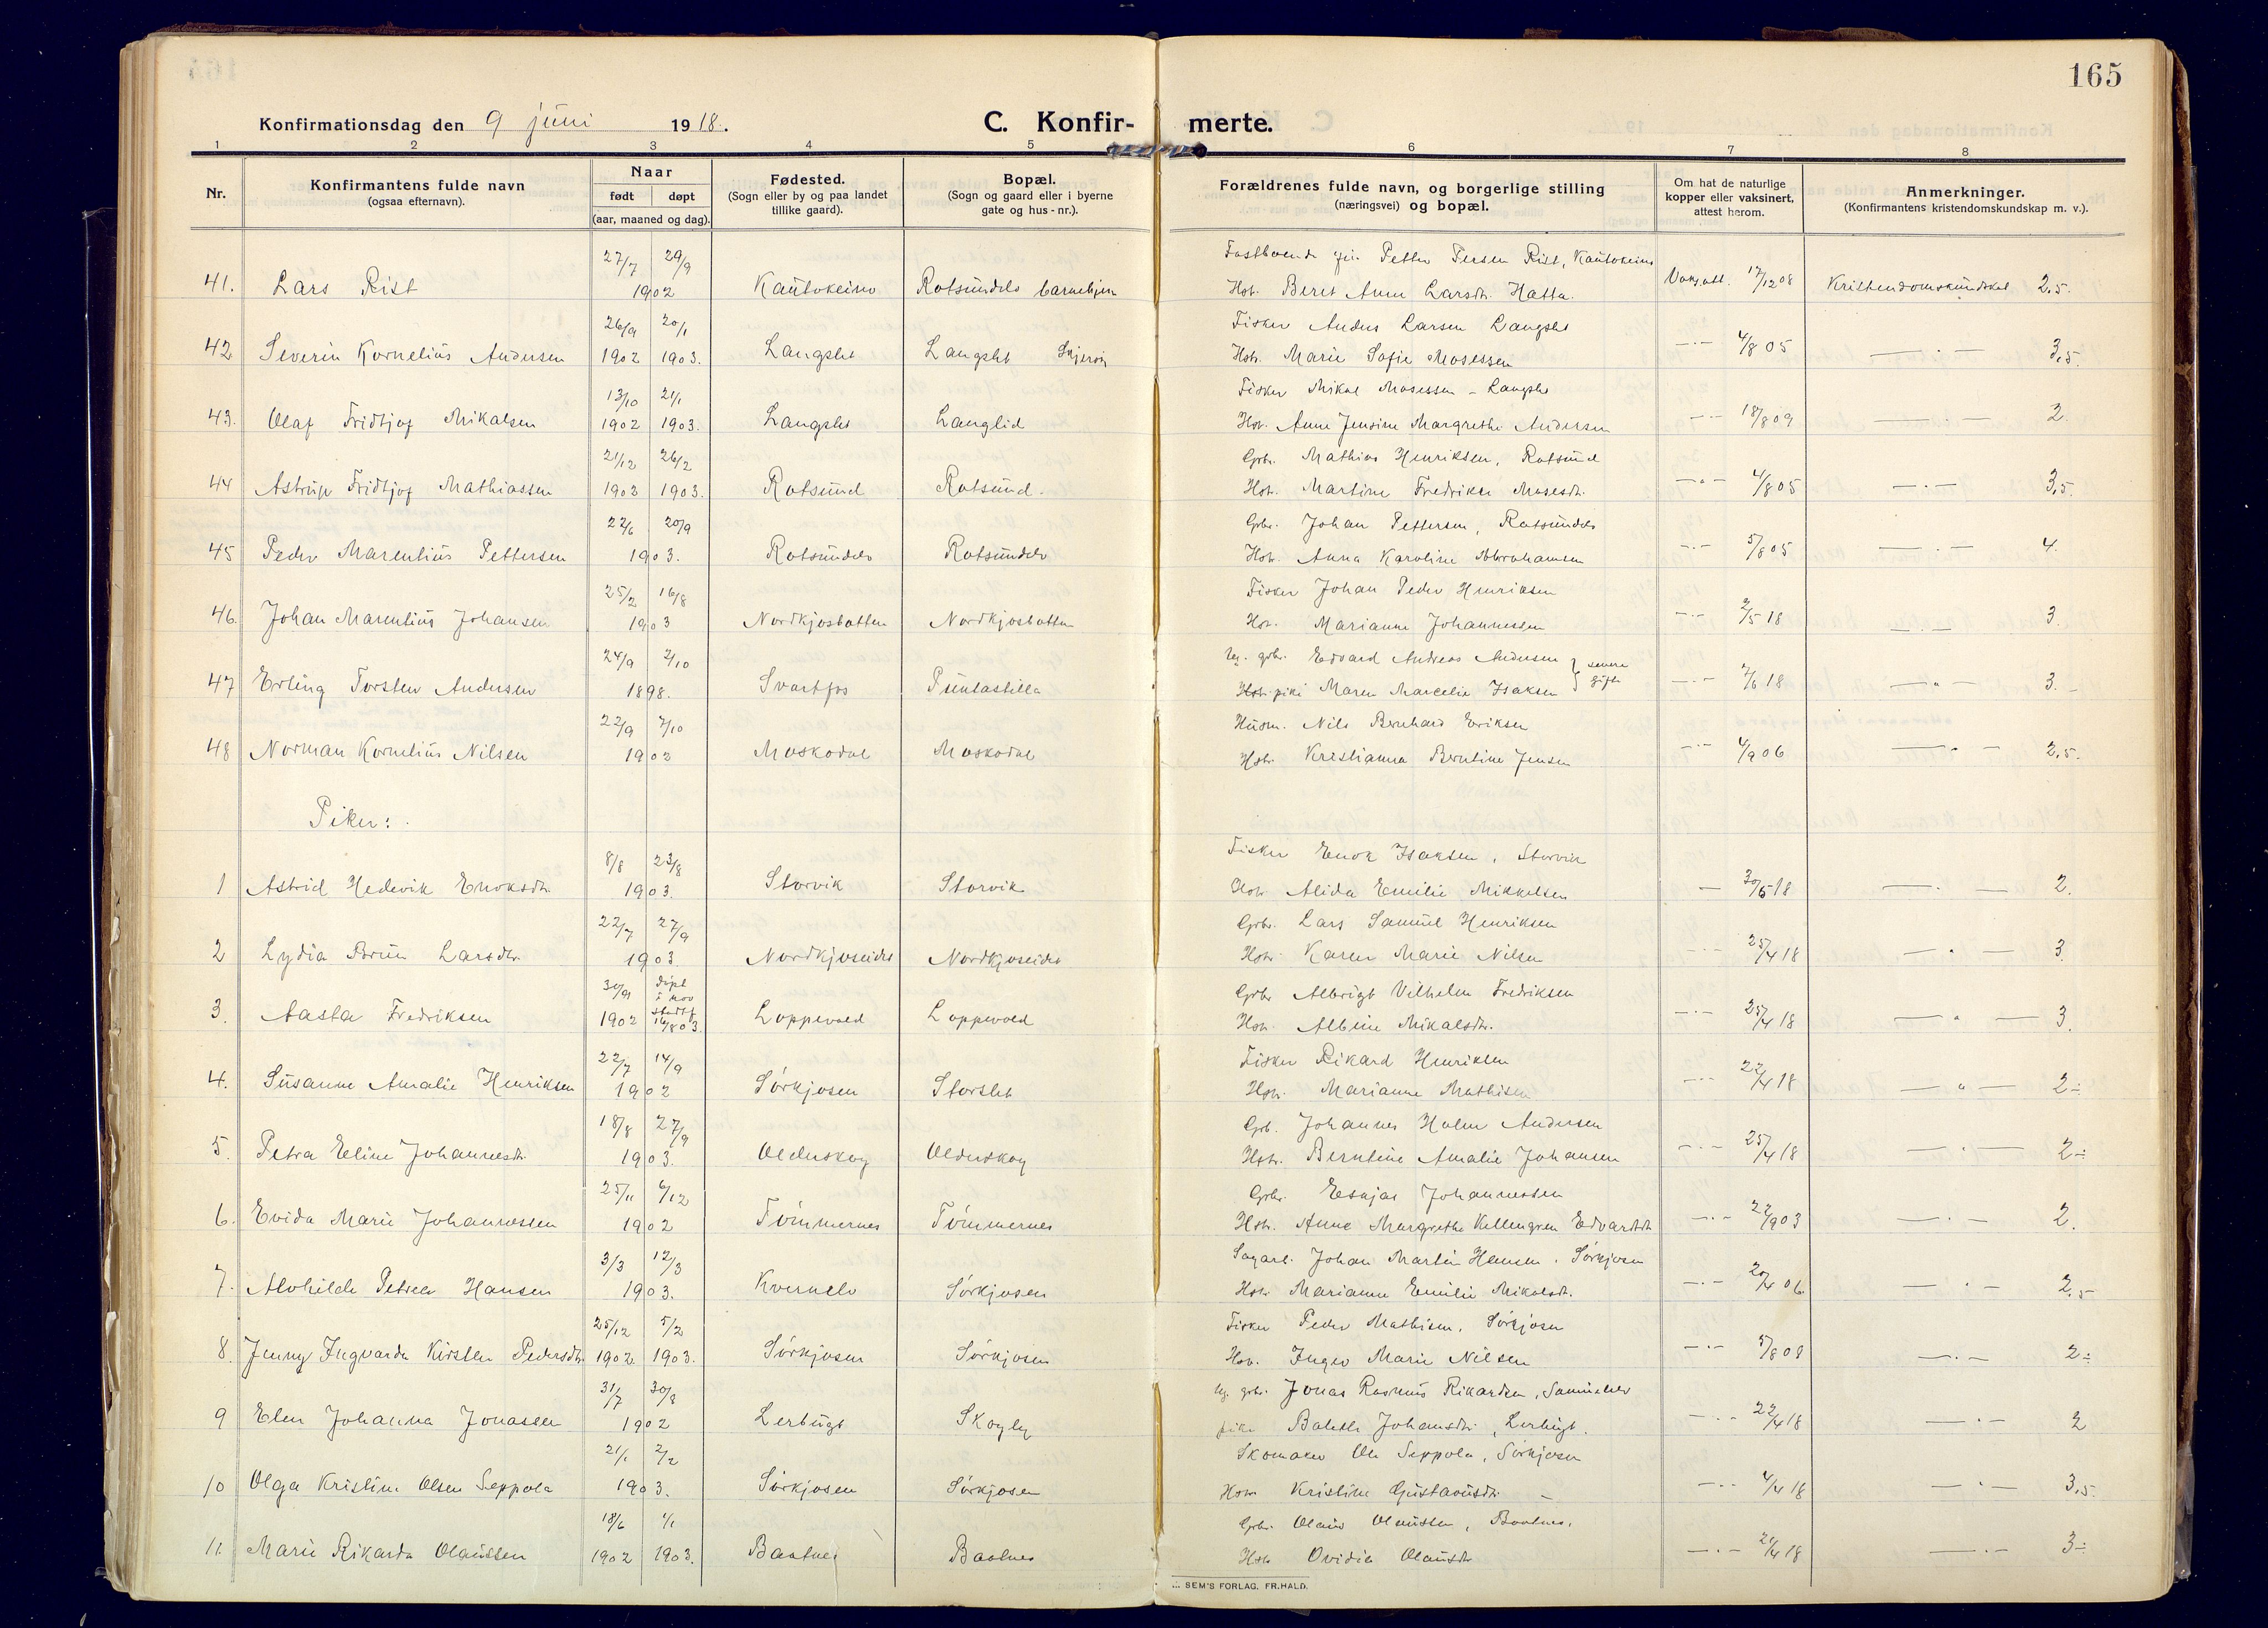 165
Konfirmationsdag den 9 juni 1918.
C. Konfir-merte.
1 2 3 4 5 6 7 8
Nr.
Konfirmantens fulde navn
(ogsaa efternavn).
Naar
født døpt
(aar, maaned og dag).
Fødested.
(Sogn eller by og paa landet
tillike gaard).
Bopæl.
(Sogn og gaard eller i byerne
gate og hus-nr.).
Forældrenes fulde navn, og borgerlige stilling
(næringsvei) og bopæl.
Om hat de naturlige
kopper eller vaksinert,
attest herom.
Anmerkninger.
(Konfirmantens kristendomskundskap m. v.).
27/7 29/9 Fastboende Petter Persen Rist, Kautokeino
41. Lars Rist 1902 Kautokeino Rotsundelv barnehjem Hst. Beret Anna Larsdtr. Hatta. Vaks.att. 17/12 08 Kristendomskundskap 2,5.
26/9 20/1 Fisker Anders Larsen Langslet
42 Severin Kornelius Andersen 1902 1903. Langslet Langslet Skjervøy Hstr. Marie Sofie Mosessen —·— 4/8 05 —·— 3,5.
13/10 21/1 Fisker Mikal Mosessen - Langslet
43. Olaf Fridtjof Mikalsen 1902 1903. Langslet Langlid Hst. Anne Jensine Margrethe Andersen —·— 18/8 09 —·— 2.
21/12 26/2 Grbr. Mathias Henriksen, Rotsund
44 Astrup Fridtjof Mathiassen 1902 1903. Rotsund Rotsund. Hst. Martine Fredrikke Mosesdtr. —·— 4/8 05 —·— 3,5.
22/6 20/9 Grbr. Johan Pettersen, Rotsundelv
45 Peder Marentius Pettersen 1903. Rotsundelv Rotsundelv Hstr. Anna Karoline Abrahamsen —·— 5/8 05 —·— 4.
25/2 16/8 Fisker Johan Peder Henriksen
46. Johan Marentius Johansen 1903 Nordkjosbotten Nordkjosbotten Hst. Marianne Johannessen —·— 2/5 18 —·— 3.
24/9 2/10 Ug. grbr. Edvard Andreas Andersen } senere
47 Erling Torsten Andersen 1898. Svartfos Puntastilla Hst. pike Maren Marcelie Isaksen } gift —·— 7/6 18 —"— 3.
22/9 7/10 Husm. Nils Bernhard Eriksen
48 Norman Kornelius Nilsen 1902 Moskodal Moskodal Hstr. Kristianna Berntine Jensen —·— 4/9 06 —·— 2,5.
Piker:
8/8 23/8 Fisker Enok Isaksen, Storvik
1 Astrid Hedevik Enoksdtr. 1903. Storvik Storvik Hstr. Alida Emilie Mikkelsen — 30/5 18 —·— 2.
22/7 27/9 Grbr. Lars Samuel Henriksen
2 Lydia Brun Larsdtr. 1903. Nordkjoseidet Nordkjoseidet Hstr. Karen Marie Nilsen —·— 25/4 18 —·— 3.
30/9 døpt i nov Grbr Albrigt Vilhelm Fredriksen
3. Aasta Fredriksen 1902 stadf. 16/8 03. Loppevold Loppevold Hstr. Albine Mikalsdtr. —·— 25/4 18 —"— 3.
22/7 14/9 Fisker Rikard Henriksen
4. Susanne Amalie Henriksen 1902 Sørkjosen Storslet Hstr. Marianne Mathisen —·— 22/4 18 —"— 2÷
18/8 27/9 Grb. Johannes Holm Andersen
5. Petra Eline Johannesdtr. 1903. Olderskog Olderskog Hstr. Berntine Amalie Johansen —·— 25/4 18 —·— 2÷
25/11 6/12 Grbr. Esajas Johannessen
6. Evida Marie Johannessen 1902 Tømmernes Tømmernes Hstr. Anne Margrethe Kellengren Edvardsdtr —·— 22/9 03 —·— 2.
3/3 12/3 Sagarb. Johan Martin Hansen, Sørkjosen
7. Alvhilde Petrea Hansen 1903. Kvernelv Sørkjosen Hstr. Marianne Emilie Mikalsdtr. —·— 20/4 06 —·— 2,5
25/12 5/2 Fisker Peder Mathisen, Sørkjosen
8. Jenny Ingvarda Kirsten Pedersdtr. 1902 1903. Sørkjosen Sørkjosen Hst. Inger Marie Nilsen —·— 5/8 08 —·— 2÷
31/7 30/8 Ug. grbr. Jonas Rasmus Rikardsen, Samuelelv
9 Elen Johanna Jonassen 1902 Lerbugt Skogly pike Baletta Johansdtr., Lerbugt. —·— 22/4 18 —·— 2
21/1 2/2 Skomaker Ole Seppola, Sørkjosen
10 Olga Kristine Olsen Seppola 1903. Sørkjosen Sørkjosen Hstr Kristine Gustavusdtr. — —·— 4/4 18 —·— 3,5.
18/6 1/1 Grbr. Olaus Olaussen, Baatnes.
11. Marie Rikarda Olaussen 1902 1903. Baatnes Baatnes Hstr Ovidia Olausdtr —·— 22/4 18 —·— 3÷
SEM'S FORLAG, FR.HALD.